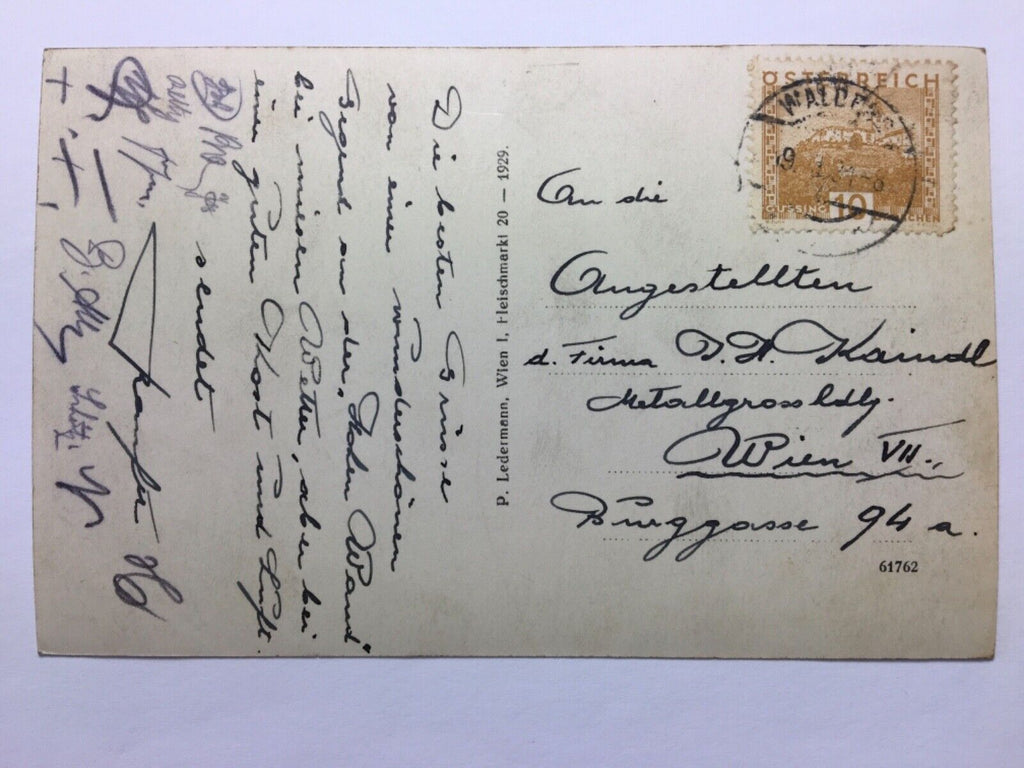 Die besten Grüsse
von einer wunderschönen
Gegend an der „Hohen Wand"
bei miesen Wetter, aber bei
einer guten Kost und Luft.
sendet
P. Ledermann, Wien I, Fleischmarkt 20 — 1929.
ÖSTERREICH
10
WALDEGG
An die
Angestellten
d. Firma J. A. Kaindl
Metallgrosshdlg.
Wien VII.,
Burggasse 94 a.
61762